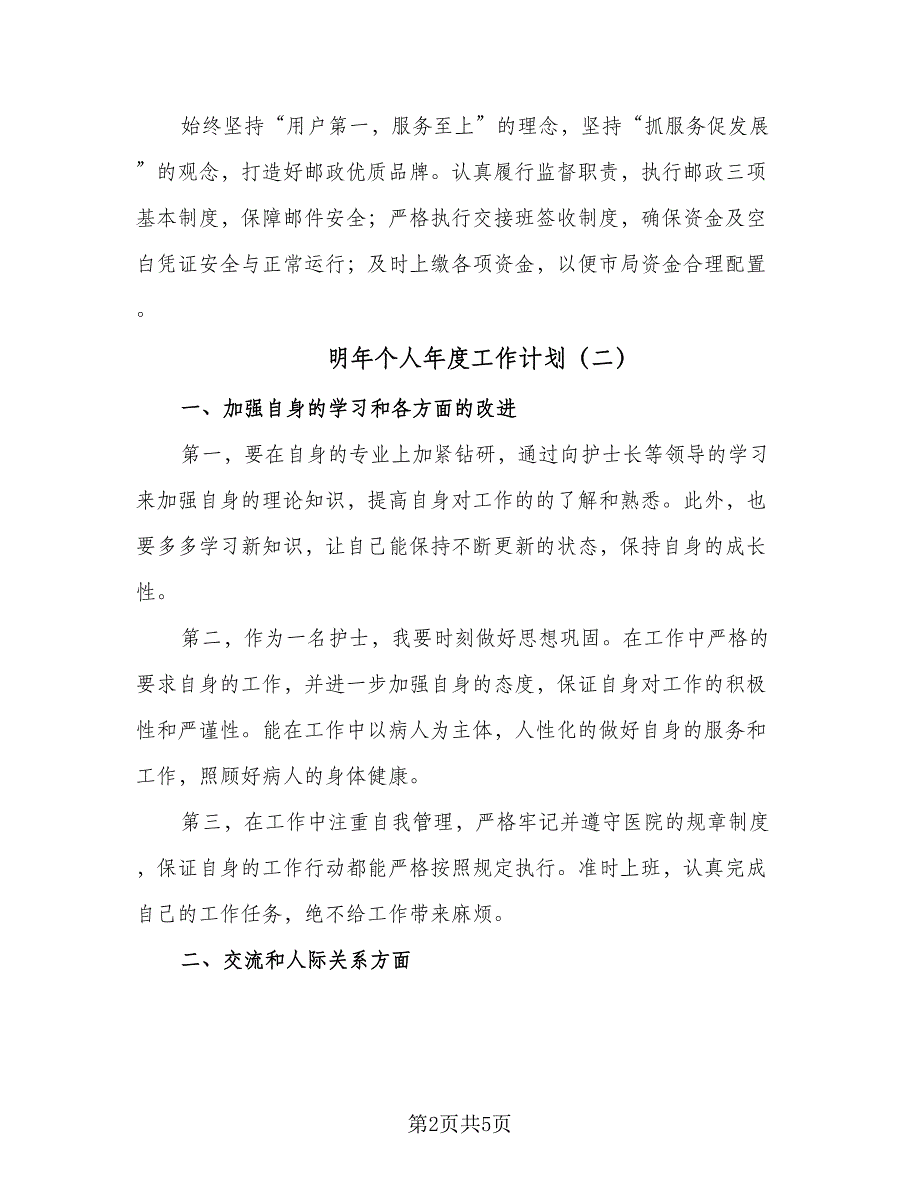 始终坚持“用户第一，服务至上”的理念，坚持“抓服务促发展
”的观念，打造好邮政优质品牌。认真履行监督职责，执行邮政三项
基本制度，保障邮件安全；严格执行交接班签收制度，确保资金及空
白凭证安全与正常运行；及时上缴各项资金，以便市局资金合理配置
。
明年个人年度工作计划（二）
一、加强自身的学习和各方面的改进
第一，要在自身的专业上加紧钻研，通过向护士长等领导的学习
来加强自身的理论知识，提高自身对工作的的了解和熟悉。此外，也
要多多学习新知识，让自己能保持不断更新的状态，保持自身的成长
性。
第二，作为一名护士，我要时刻做好思想巩固。在工作中严格的
要求自身的工作，并进一步加强自身的态度，保证自身对工作的积极
性和严谨性。能在工作中以病人为主体，人性化的做好自身的服务和
工作，照顾好病人的身体健康。
第三，在工作中注重自我管理，严格牢记并遵守医院的规章制度
，保证自身的工作行动都能严格按照规定执行。准时上班，认真完成
自己的工作任务，绝不给工作带来麻烦。
二、交流和人际关系方面
第2页共5页